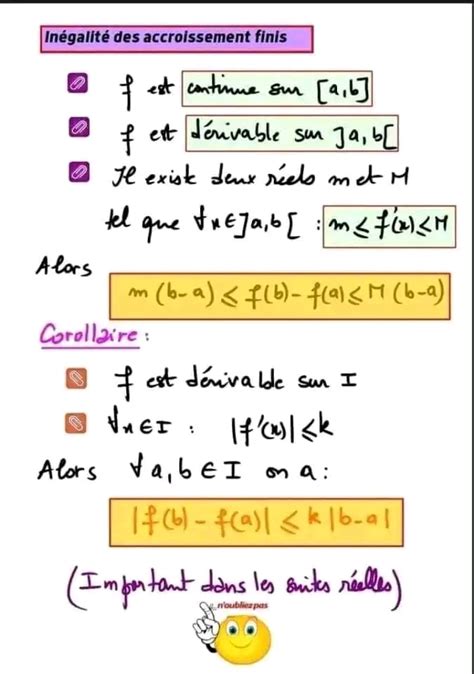 Inégalité des accroissement finis
f est continue sur [a,b]
f est dérivable sur ]a,b[
Il existe deux réels m et M
tel que ∀x∈]a,b[ : m ≤ f'(x) ≤ M
Alors
m (b-a) ≤ f(b) - f(a) ≤ M (b-a)
Corollaire :
f est dérivable sur I
∀x∈I : |f'(x)| ≤ k
Alors ∀a,b∈I on a :
|f(b) - f(a)| ≤ k |b-a|
(Important dans les suites réelles)
n'oubliez pas